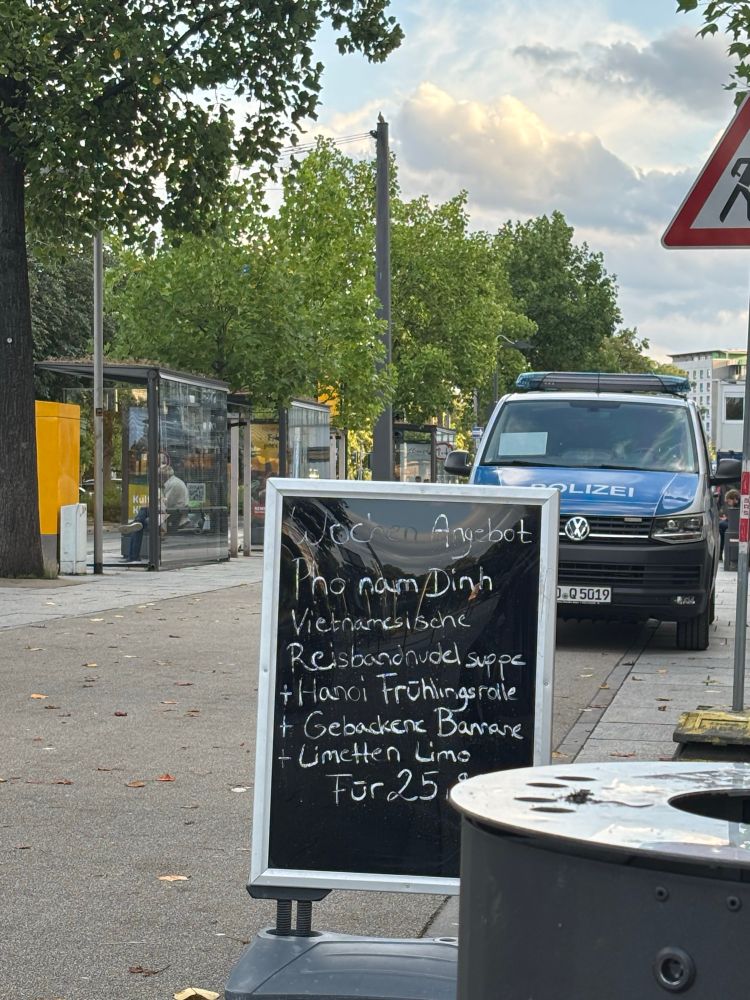 POLIZEI
D·Q 5019
Wochen Angebot
Pho nam Dinh
Vietnamesische
Reisbandnudelsuppe
+ Hanoi Frühlingsrolle
+ Gebackene Banane
+ Limetten Limo
Für 25,